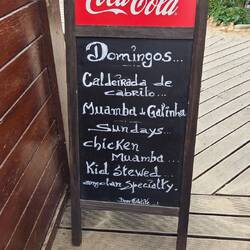 Coca-Cola
Domingos...
Caldeirada de
cabrito...
Muamba de Galinha
Sundays...
chicken
Muamba...
Kid Stewed...
angolan Specialty.